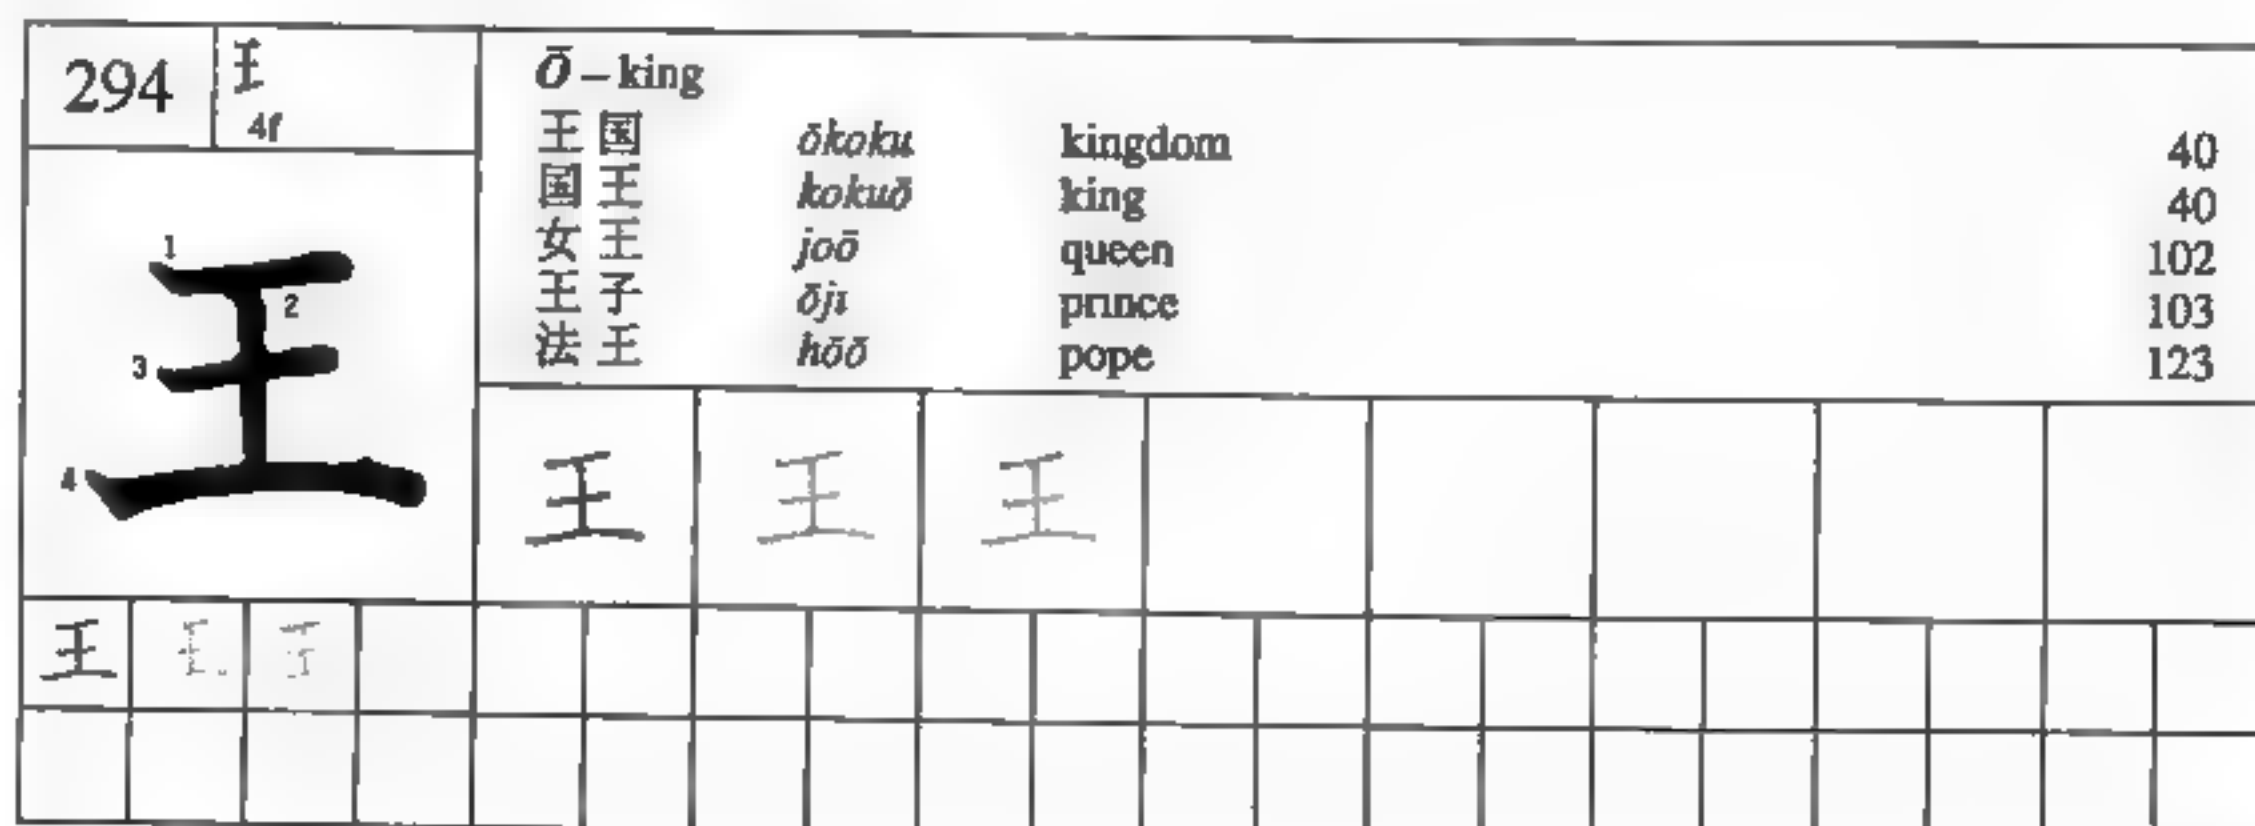 294
王
4f
Ō – king
王国 ōkoku kingdom 40
国王 kokuō king 40
女王 joō queen 102
王子 ōji prince 103
法王 hōō pope 123
1
2
3
4
王
王 王 王
王 王 王